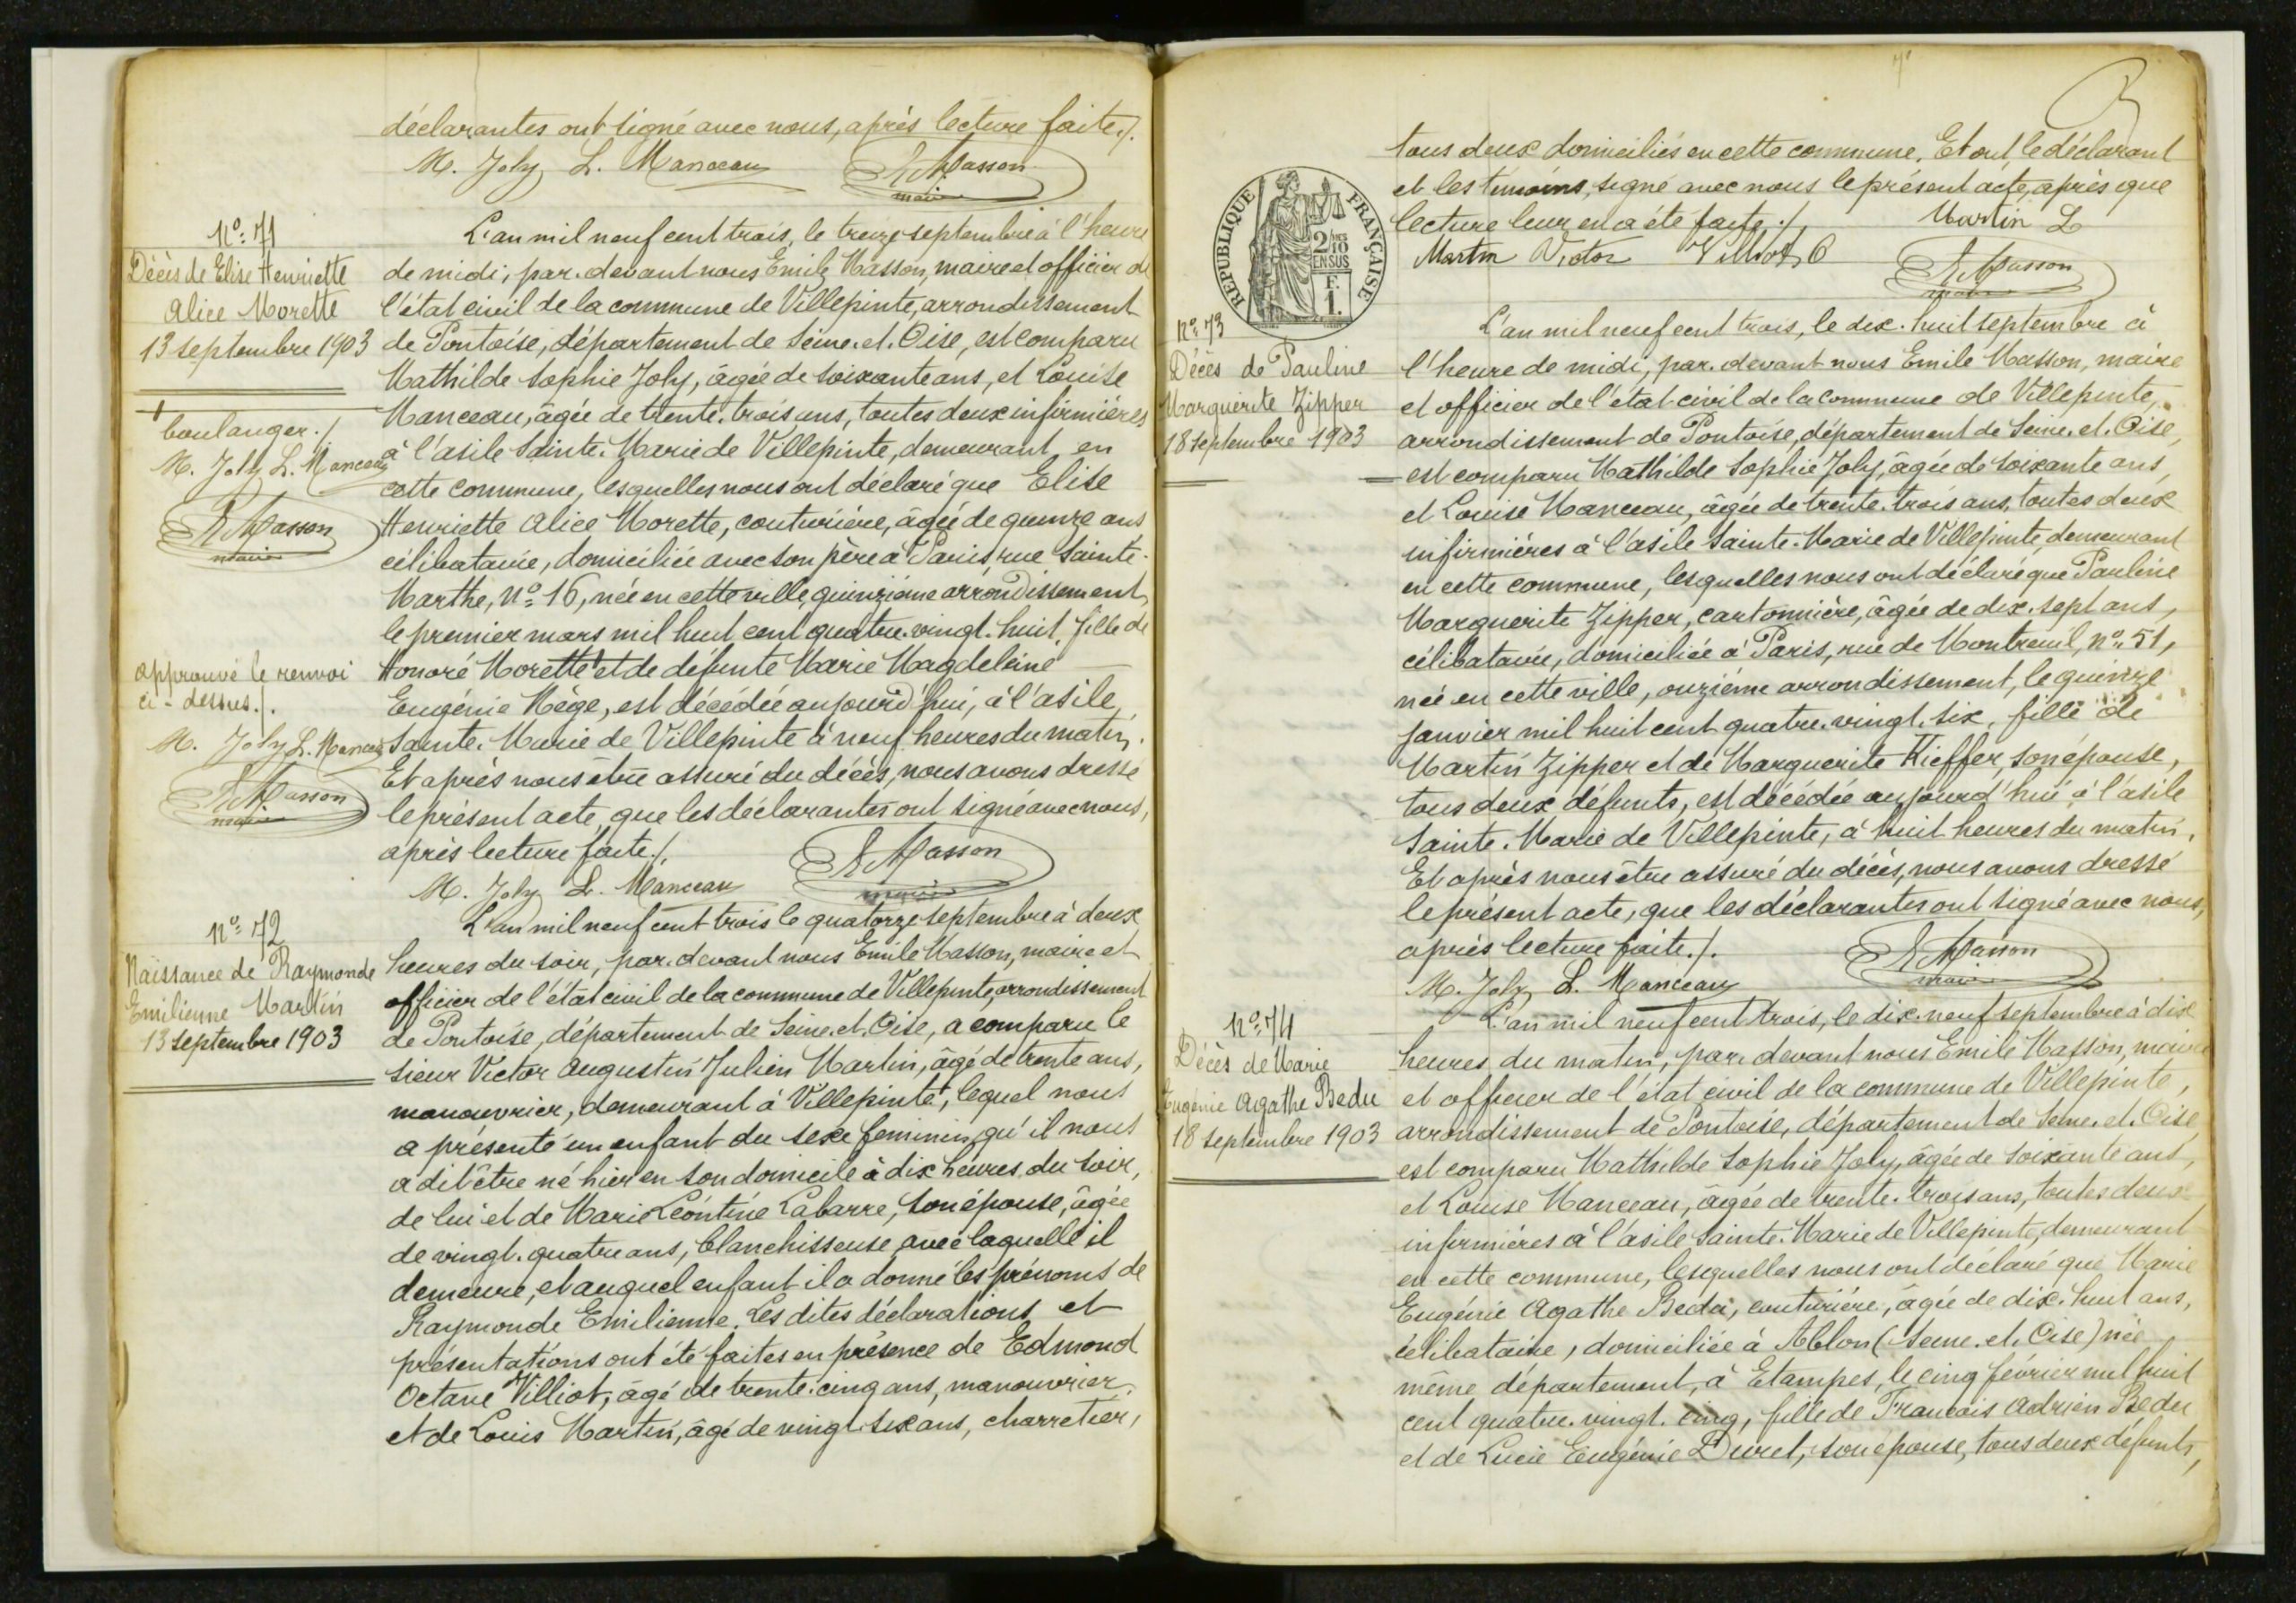 déclarantes ont signé avec nous, après lecture faite./.
M. Joly L. Manceau E Masson
maire
N° 71
Décès de Elise Henriette
Alice Morette
13 septembre 1903
L'an mil neuf cent trois, le treize septembre à l'heure
de midi, par-devant nous Emile Masson, maire et officier de
l'état civil de la commune de Villepinte, arrondissement
de Pontoise, département de Seine-et-Oise, est comparu
Mathilde Sophie Joly, âgée de soixante ans, et Louise
Manceau, âgée de trente-trois ans, toutes deux infirmières
à l'asile Sainte-Marie de Villepinte, demeurant en
cette commune, lesquelles nous ont déclaré que Elise
Henriette Alice Morette, couturière, âgée de quinze ans
célibataire, domiciliée avec son père à Paris, rue Sainte-
Marthe, N° 16, née en cette ville, quinzième arrondissement,
le premier mars mil huit cent quatre-vingt-huit, fille de
Honoré Morette + et de défunte Marie Magdeleine
Eugénie Mège, est décédée aujourd'hui, à l'asile
Sainte-Marie de Villepinte à neuf heures du matin.
Et après nous être assuré du décès, nous avons dressé
le présent acte, que les déclarantes ont signé avec nous,
après lecture faite./.
M. Joly L. Manceau E Masson
maire
+
boulanger./
M. Joly L. Manceau
E Masson
maire
approuvé le renvoi
ci-dessus./.
M. Joly L. Manceau
E Masson
maire
N° 72
Naissance de Raymonde
Emilienne Martin
13 septembre 1903
L'an mil neuf cent trois le quatorze septembre à deux
heures du soir, par-devant nous Emile Masson, maire et
officier de l'état civil de la commune de Villepinte, arrondissement
de Pontoise, département de Seine-et-Oise, a comparu le
sieur Victor Augustin Julien Martin, âgé de trente ans,
manouvrier, demeurant à Villepinte, lequel nous
a présenté un enfant du sexe feminin, qu'il nous
a dit être né hier en son domicile à dix heures du soir,
de lui et de Marie Léontine Labarre, son épouse, âgée
de vingt-quatre ans, blanchisseuse avec laquelle il
demeure, et auquel enfant il a donné les prénoms de
Raymonde Emilienne. Les dites déclarations et
présentations ont été faites en présence de Edmond
Octave Villiot, âgé de trente-cinq ans, manouvrier,
et de Louis Martin, âgé de vingt-six ans, charretier,
tous deux domiciliés en cette commune. Et ont, le déclarant
et les témoins, signé avec nous le présent acte, après que
lecture leur en a été faite./. Martin L
Martin Victor Villiot O E Masson
maire
RÉPUBLIQUE FRANÇAISE
2/10 EN SUS
F. 1.
N° 73
Décès de Pauline
Marguerite Zipper
18 septembre 1903
L'an mil neuf cent trois, le dix-huit septembre à
l'heure de midi, par-devant nous Emile Masson, maire
et officier de l'état civil de la commune de Villepinte,
arrondissement de Pontoise, département de Seine-et-Oise,
est comparu Mathilde Sophie Joly, âgée de soixante ans,
et Louise Manceau, âgée de trente-trois ans, toutes deux
infirmières à l'asile Sainte-Marie de Villepinte, demeurant
en cette commune, lesquelles nous ont déclaré que Pauline
Marguerite Zipper, cartonnière, âgée de dix-sept ans,
célibataire, domiciliée à Paris, rue de Montreuil, n° 51,
née en cette ville, onzième arrondissement, le quinze
janvier mil huit cent quatre-vingt-six, fille de
Martin Zipper et de Marguerite Kieffer, son épouse,
tous deux défunts, est décédée aujourd'hui à l'asile
Sainte-Marie de Villepinte, à huit heures du matin.
Et après nous être assuré du décès, nous avons dressé
le présent acte, que les déclarantes ont signé avec nous,
après lecture faite./.
M. Joly L. Manceau E Masson
maire
N° 74
Décès de Marie
Eugénie Agathe Bedu
18 septembre 1903
L'an mil neuf cent trois, le dix-neuf septembre à dix
heures du matin, par-devant nous Emile Masson, maire
et officier de l'état civil de la commune de Villepinte,
arrondissement de Pontoise, département de Seine-et-Oise
est comparu Mathilde Sophie Joly, âgée de soixante ans,
et Louise Manceau, âgée de trente-trois ans, toutes deux
infirmières à l'asile Sainte-Marie de Villepinte, demeurant
en cette commune, lesquelles nous ont déclaré que Marie
Eugénie Agathe Bedu, couturière, âgée de dix-huit ans,
célibataire, domiciliée à Ablon (Seine-et-Oise) née
même département, à Etampes, le cinq février mil huit
cent quatre-vingt-cinq, fille de Francois Adrien Bedu
et de Lucie Eugénie Duret, son épouse, tous deux défunts,